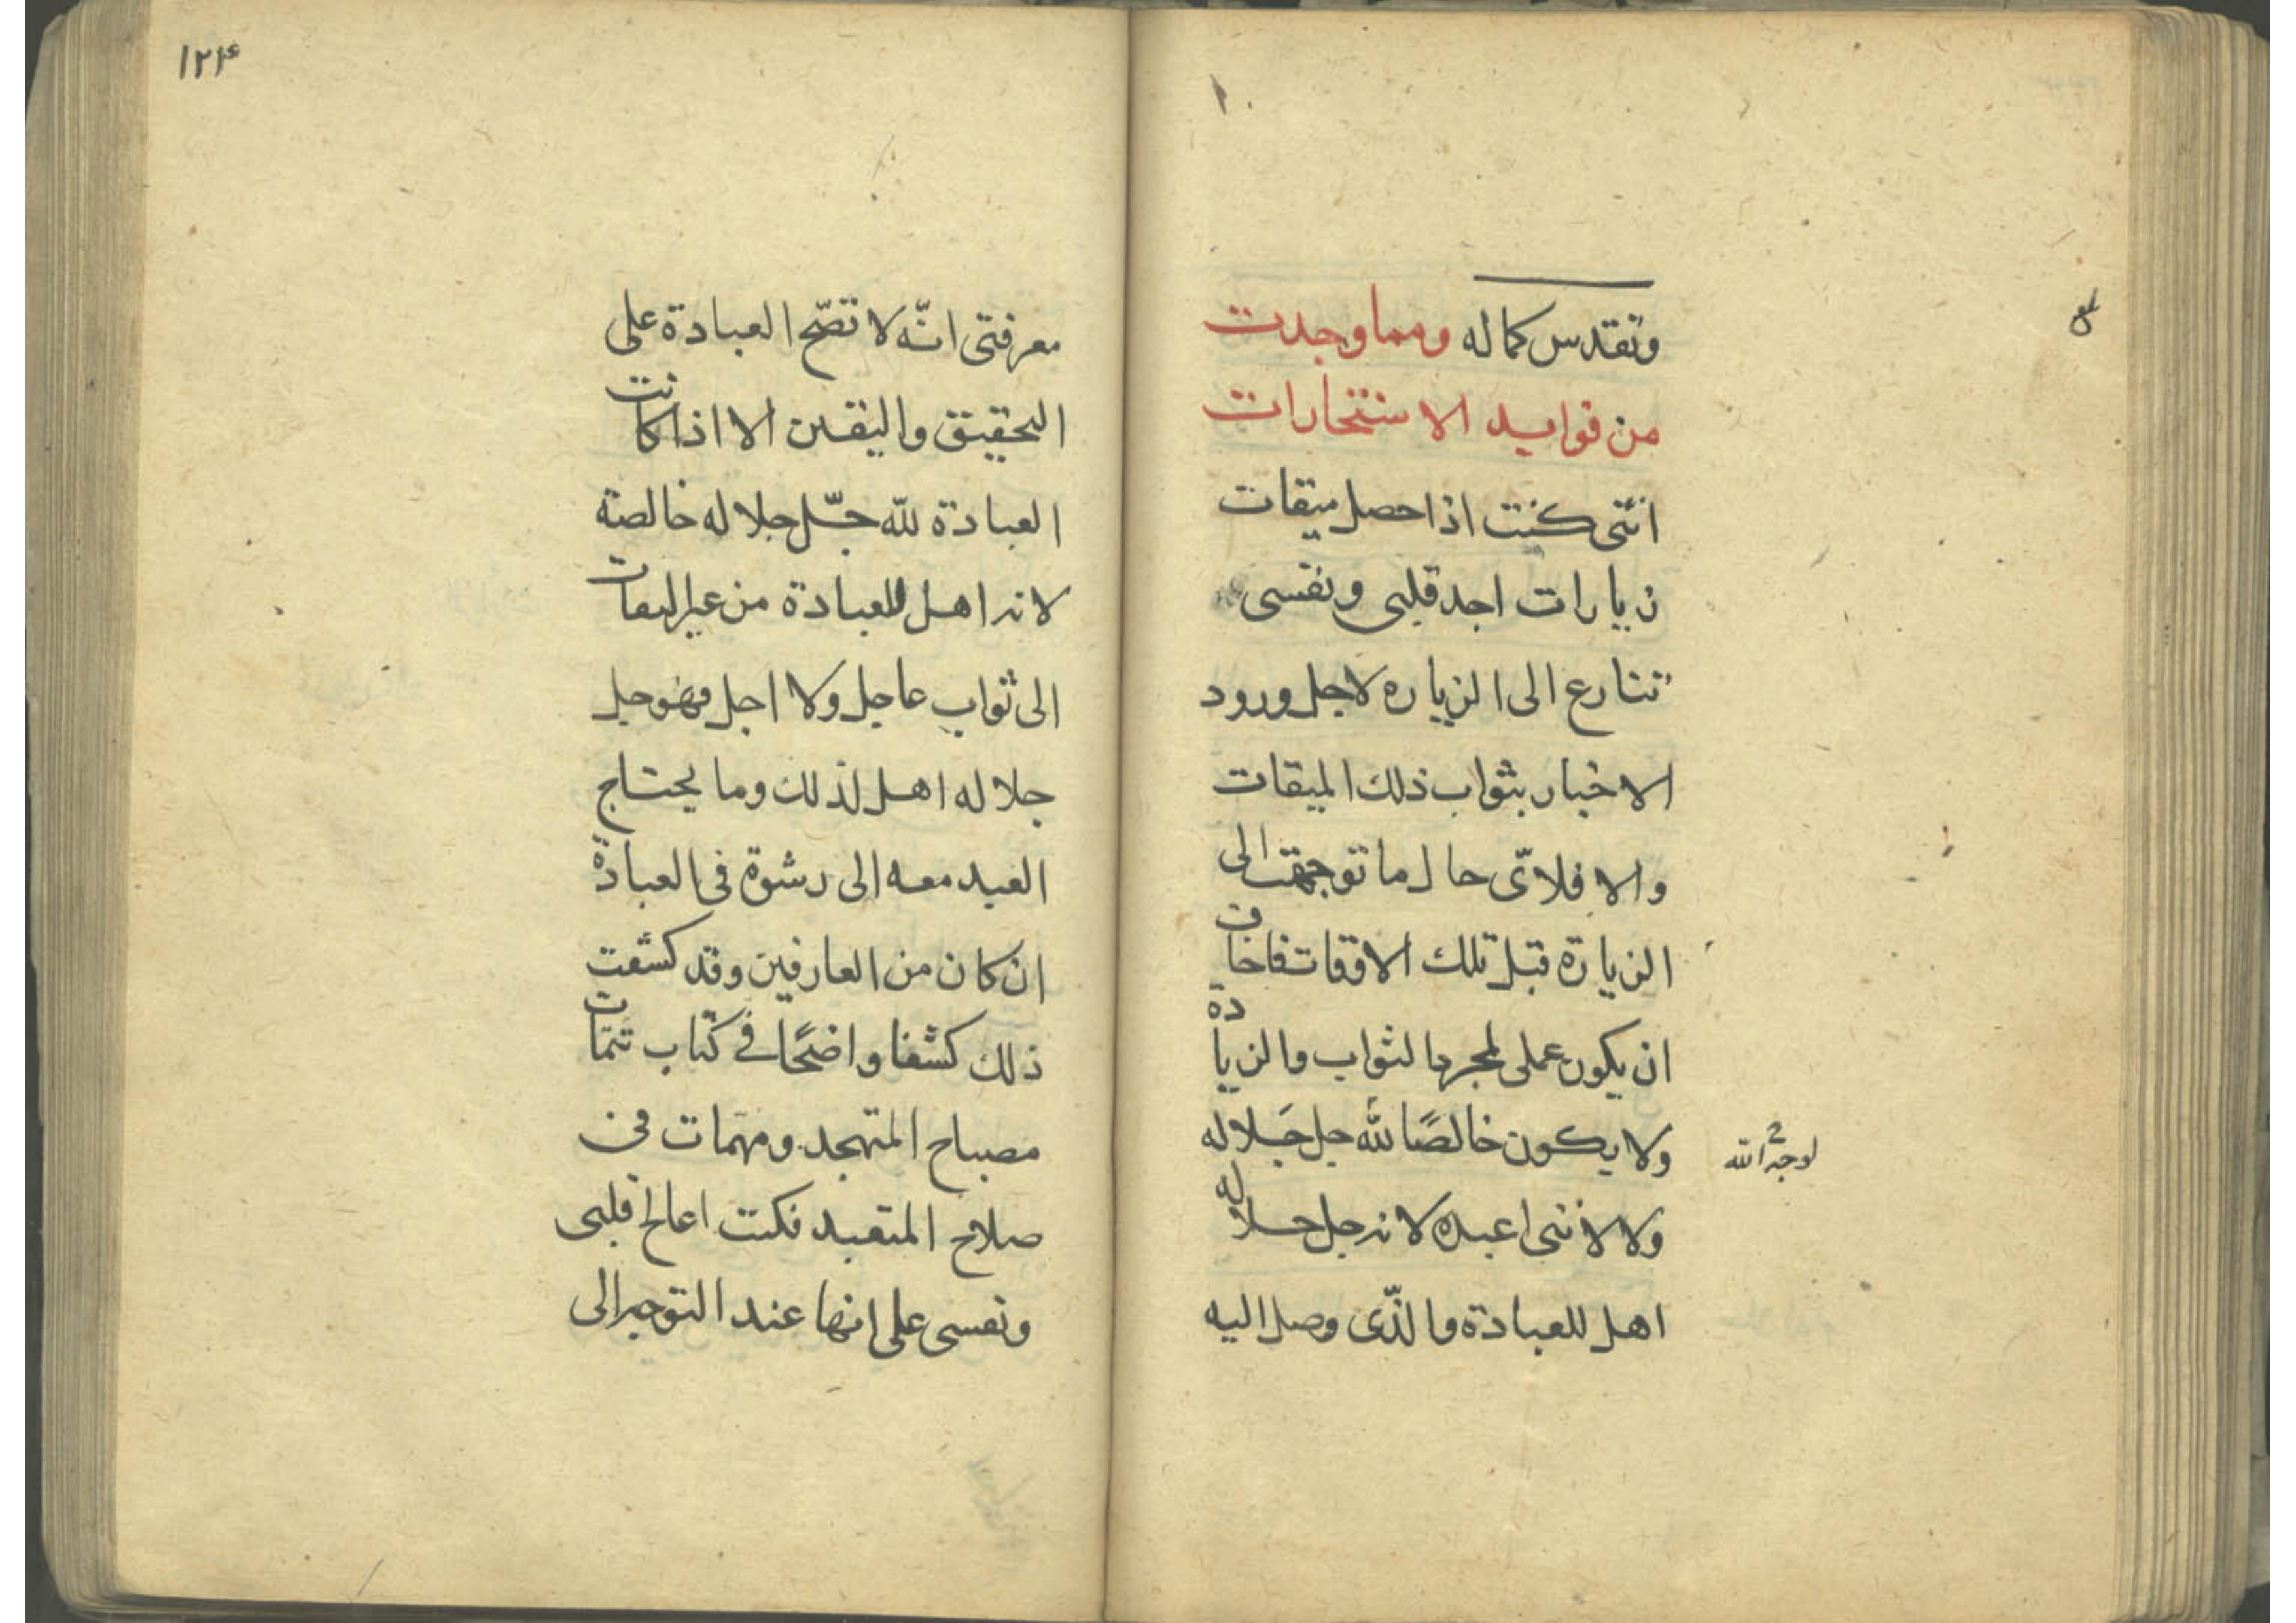 وتقدس كماله ومما وجدت
من فوايد الاستخارات
انني كنت اذا حصل ميقات
زيارات اجد قلبي ونفسي
تنازع الى الزياره لاجل ورود
الاخبار بثواب ذلك الميقات
والا فلاىّ حال ما توجهت الى
الزيارة قبل تلك الاوقات فاخاف
ان يكون عملى لمجرد الثواب والزيادة
ولا يكون خالصًا لله جل جَلاله
لوجه الله
ولا لاننى اعبده لانه جل جلاله
اهل للعبادة والذّى وصل اليه
۱۲۴
معرفتى انّه لا تصّح العبادة على
التحقيق واليقين الا اذا كانت
العبادة لله جّل جلاله خالصة
لانه اهل للعبادة من غير التفات
الى ثواب عاجل ولا اجل فهو جل
جلاله اهل لذلك وما يحتاج
العبد معه الى رشوة فى العبادة
ان كان من العارفين وقد كشفت
ذلك كشفا واضحًا فى كتاب تتمّات
مصباح المتهجد ومهمّات فى
صلاح المتعبد فكنت اعالج قلبى
ونفسى على انها عند التوجه الى